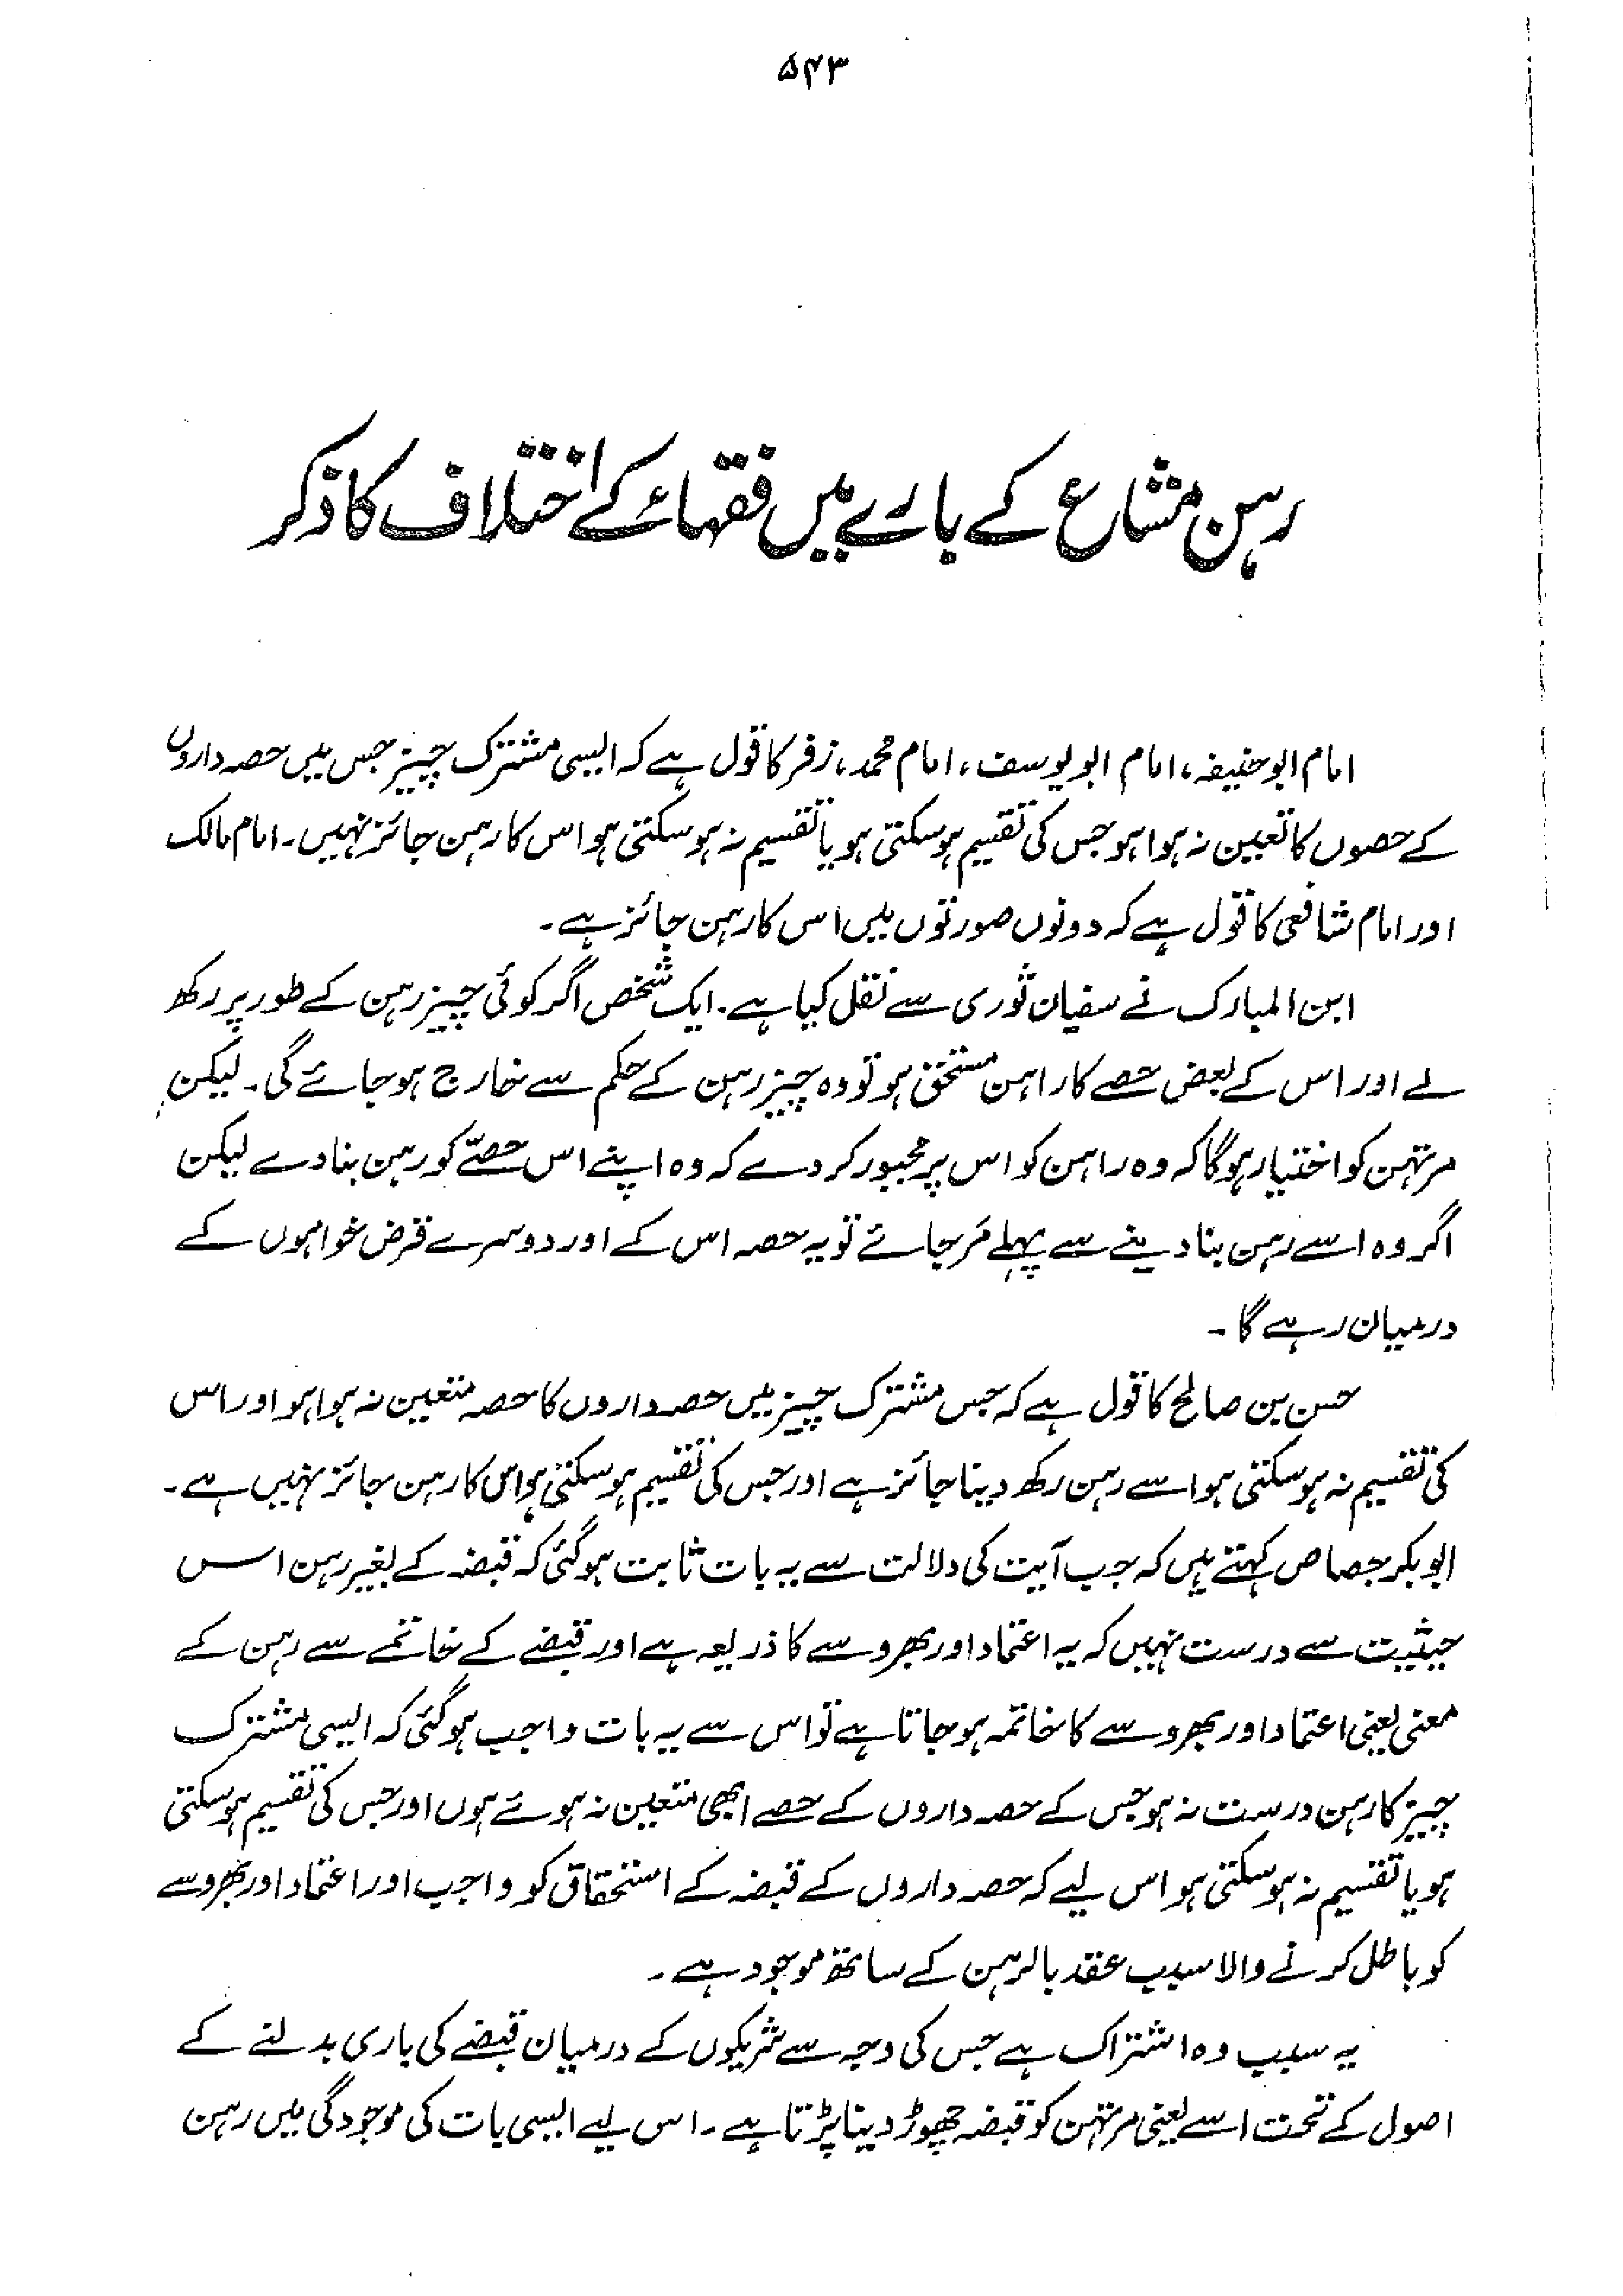 ۵۴۳
رہن مشاع کے بارے میں فقہاء کے اختلاف کا ذکر
امام ابوحنیفہ، امام ابویوسف، امام محمد، زفر کا قول ہے کہ ایسی مشترک چیز جس میں حصہ داروں
کے حصوں کا تعین نہ ہوا ہو جس کی تقسیم ہو سکتی ہو یا تقسیم نہ ہو سکتی ہو اس کا رہن جائز نہیں۔ امام مالک
اور امام شافعی کا قول ہے کہ دونوں صورتوں میں اس کا رہن جائز ہے۔
ابن المبارک نے سفیان ثوری سے نقل کیا ہے۔ ایک شخص اگر کوئی چیز رہن کے طور پر رکھ
لے اور اس کے بعض حصے کا راہن مستحق ہو تو وہ چیز رہن کے حکم سے خارج ہو جائے گی۔ لیکن
مرتہن کو اختیار ہوگا کہ وہ راہن کو اس پر مجبور کر دے کہ وہ اپنے اس حصّے کو رہن بنا دے لیکن
اگر وہ اسے رہن بنا دینے سے پہلے مَر جائے تو یہ حصہ اس کے اور دوسرے قرض خواہوں کے
درمیان رہے گا۔
حسن بن صالح کا قول ہے کہ جس مشترک چیز میں حصہ داروں کا حصہ متعین نہ ہوا ہو اور اس
کی تقسیم نہ ہو سکتی ہو اسے رہن رکھ دینا جائز ہے اور جس کی تقسیم ہو سکتی ہو اس کا رہن جائز نہیں ہے۔
ابوبکر جصاص کہتے ہیں کہ جب آیت کی دلالت سے یہ بات ثابت ہو گئی کہ قبضہ کے بغیر رہن اس
حیثیت سے درست نہیں کہ یہ اعتماد اور بھروسے کا ذریعہ ہے اور قبضے کے خاتمے سے رہن کے
معنی یعنی اعتماد اور بھروسے کا خاتمہ ہو جاتا ہے تو اس سے یہ بات واجب ہو گئی کہ ایسی مشترک
چیز کا رہن درست نہ ہو جس کے حصہ داروں کے حصے ابھی متعین نہ ہوئے ہوں اور جس کی تقسیم ہو سکتی
ہو یا تقسیم نہ ہو سکتی ہو اس لیے کہ حصہ داروں کے قبضہ کے استحقاق کو واجب اور اعتماد اور بھروسے
کو باطل کرنے والا سبب عقد بالرہن کے ساتھ موجود ہے۔
یہ سبب وہ اشتراک ہے جس کی وجہ سے شریکوں کے درمیان قبضے کی باری بدلنے کے
اصول کے تحت اسے یعنی مرتہن کو قبضہ چھوڑ دینا پڑتا ہے۔ اس لیے ایسی بات کی موجودگی میں رہن